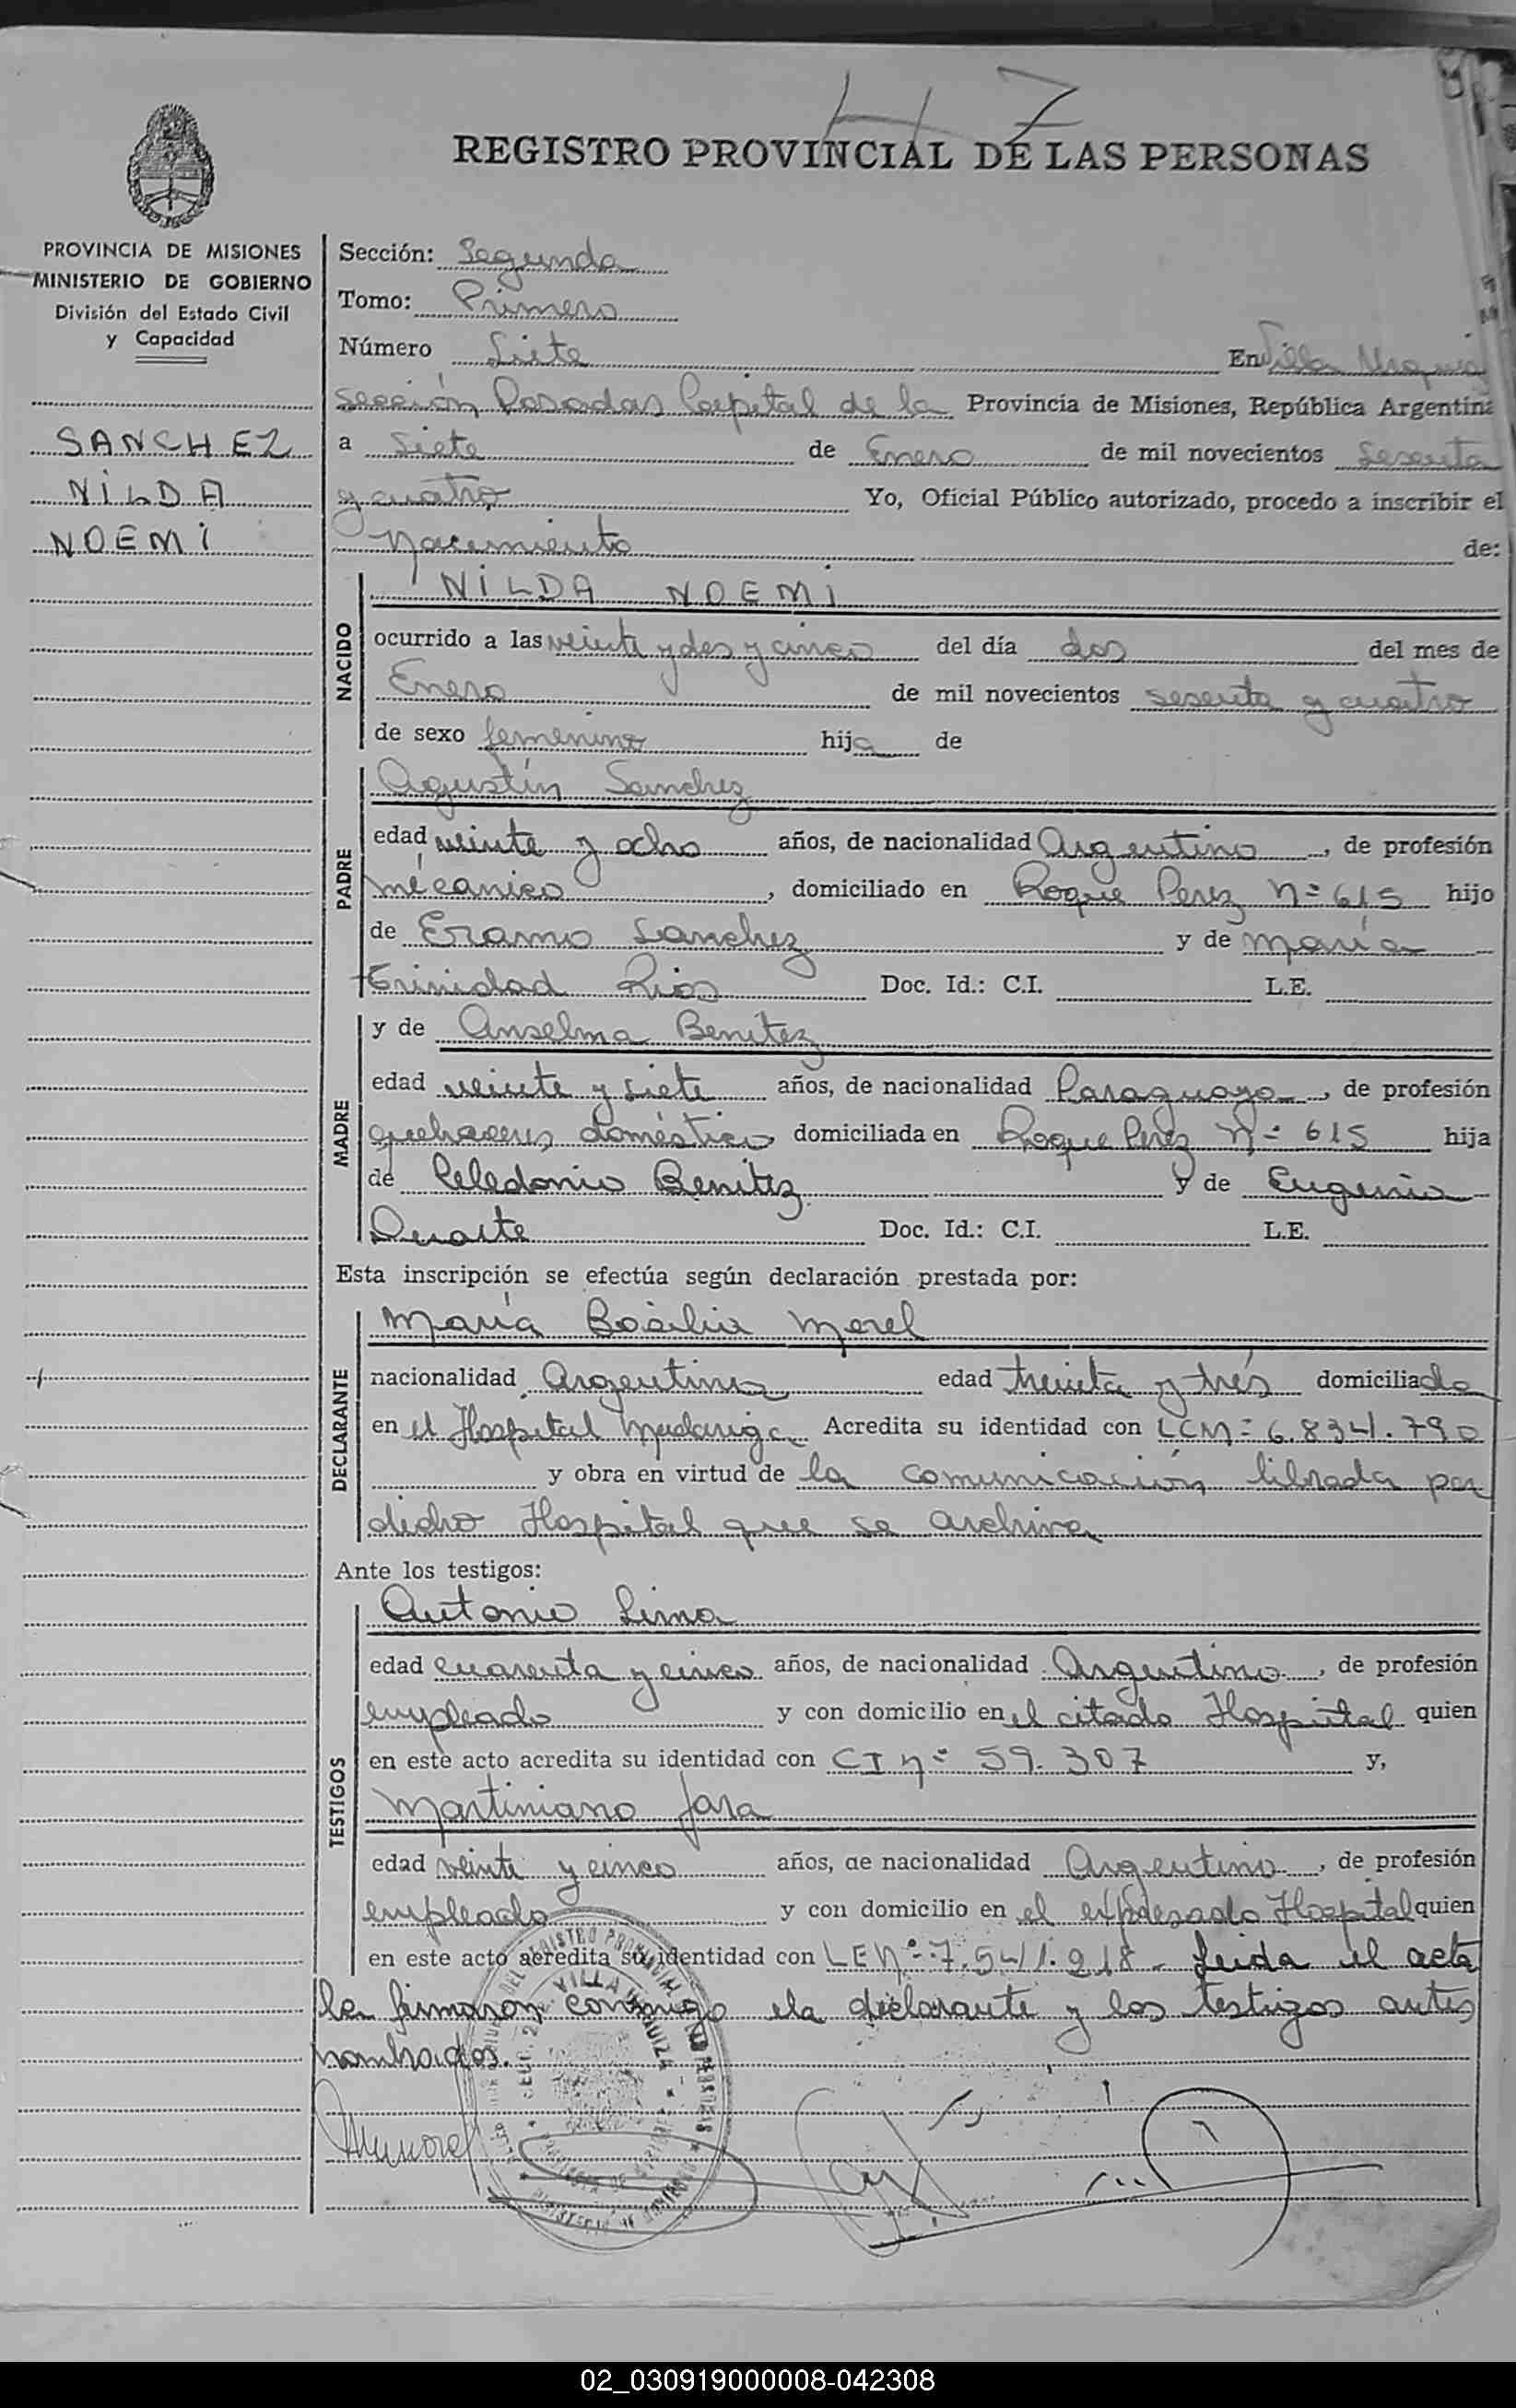 47
REGISTRO PROVINCIAL DE LAS PERSONAS
PROVINCIA DE MISIONES
MINISTERIO DE GOBIERNO
División del Estado Civil
y Capacidad
SANCHEZ
NILDA
NOEMI
Sección: Segunda
Tomo: Primero
Número Siete En Villa Urquiz
sección Posadas Capital de la Provincia de Misiones, República Argentina
a siete de Enero de mil novecientos sesenta
y cuatro Yo, Oficial Público autorizado, procedo a inscribir el
nacimiento de:
NACIDO
NILDA NOEMI
ocurrido a las veinte y dos y cinco del día dos del mes de
Enero de mil novecientos sesenta y cuatro
de sexo femenino hija de
PADRE
Agustín Sanchez
edad veinte y ocho años, de nacionalidad Argentino, de profesión
mécanico, domiciliado en Roque Perez Nº 615 hijo
de Eramo Sanchez y de María
trinidad Rios Doc. Id.: C.I. L.E.
MADRE
y de Anselma Benitez
edad veinte y siete años, de nacionalidad Paraguaya, de profesión
quehaceres doméstico domiciliada en Roque Perez Nº 615 hija
de Celedonio Benitez y de Eugenia
Duarte Doc. Id.: C.I. L.E.
Esta inscripción se efectúa según declaración prestada por:
DECLARANTE
María Morel
nacionalidad Argentina edad treinta y trés domiciliada
en el Hospital Madariaga Acredita su identidad con LCNº 6.834.790
y obra en virtud de la comunicación librada por
dicho Hospital que se archiva
Ante los testigos:
TESTIGOS
Antonio Lima
edad cuarenta y cinco años, de nacionalidad Argentino, de profesión
empleado y con domicilio en el citado Hospital quien
en este acto acredita su identidad con CI nº 59.307 y,
Martiniano Jara
edad veinte y cinco años, de nacionalidad Argentino, de profesión
empleado y con domicilio en el expresado Hospital quien
en este acto acredita su identidad con LENº 7.541.218 - Leida el acta
la firmaron conmigo la declarante y los testigos antes
nombrados.
VILLA URQUIZA
02_030919000008-042308